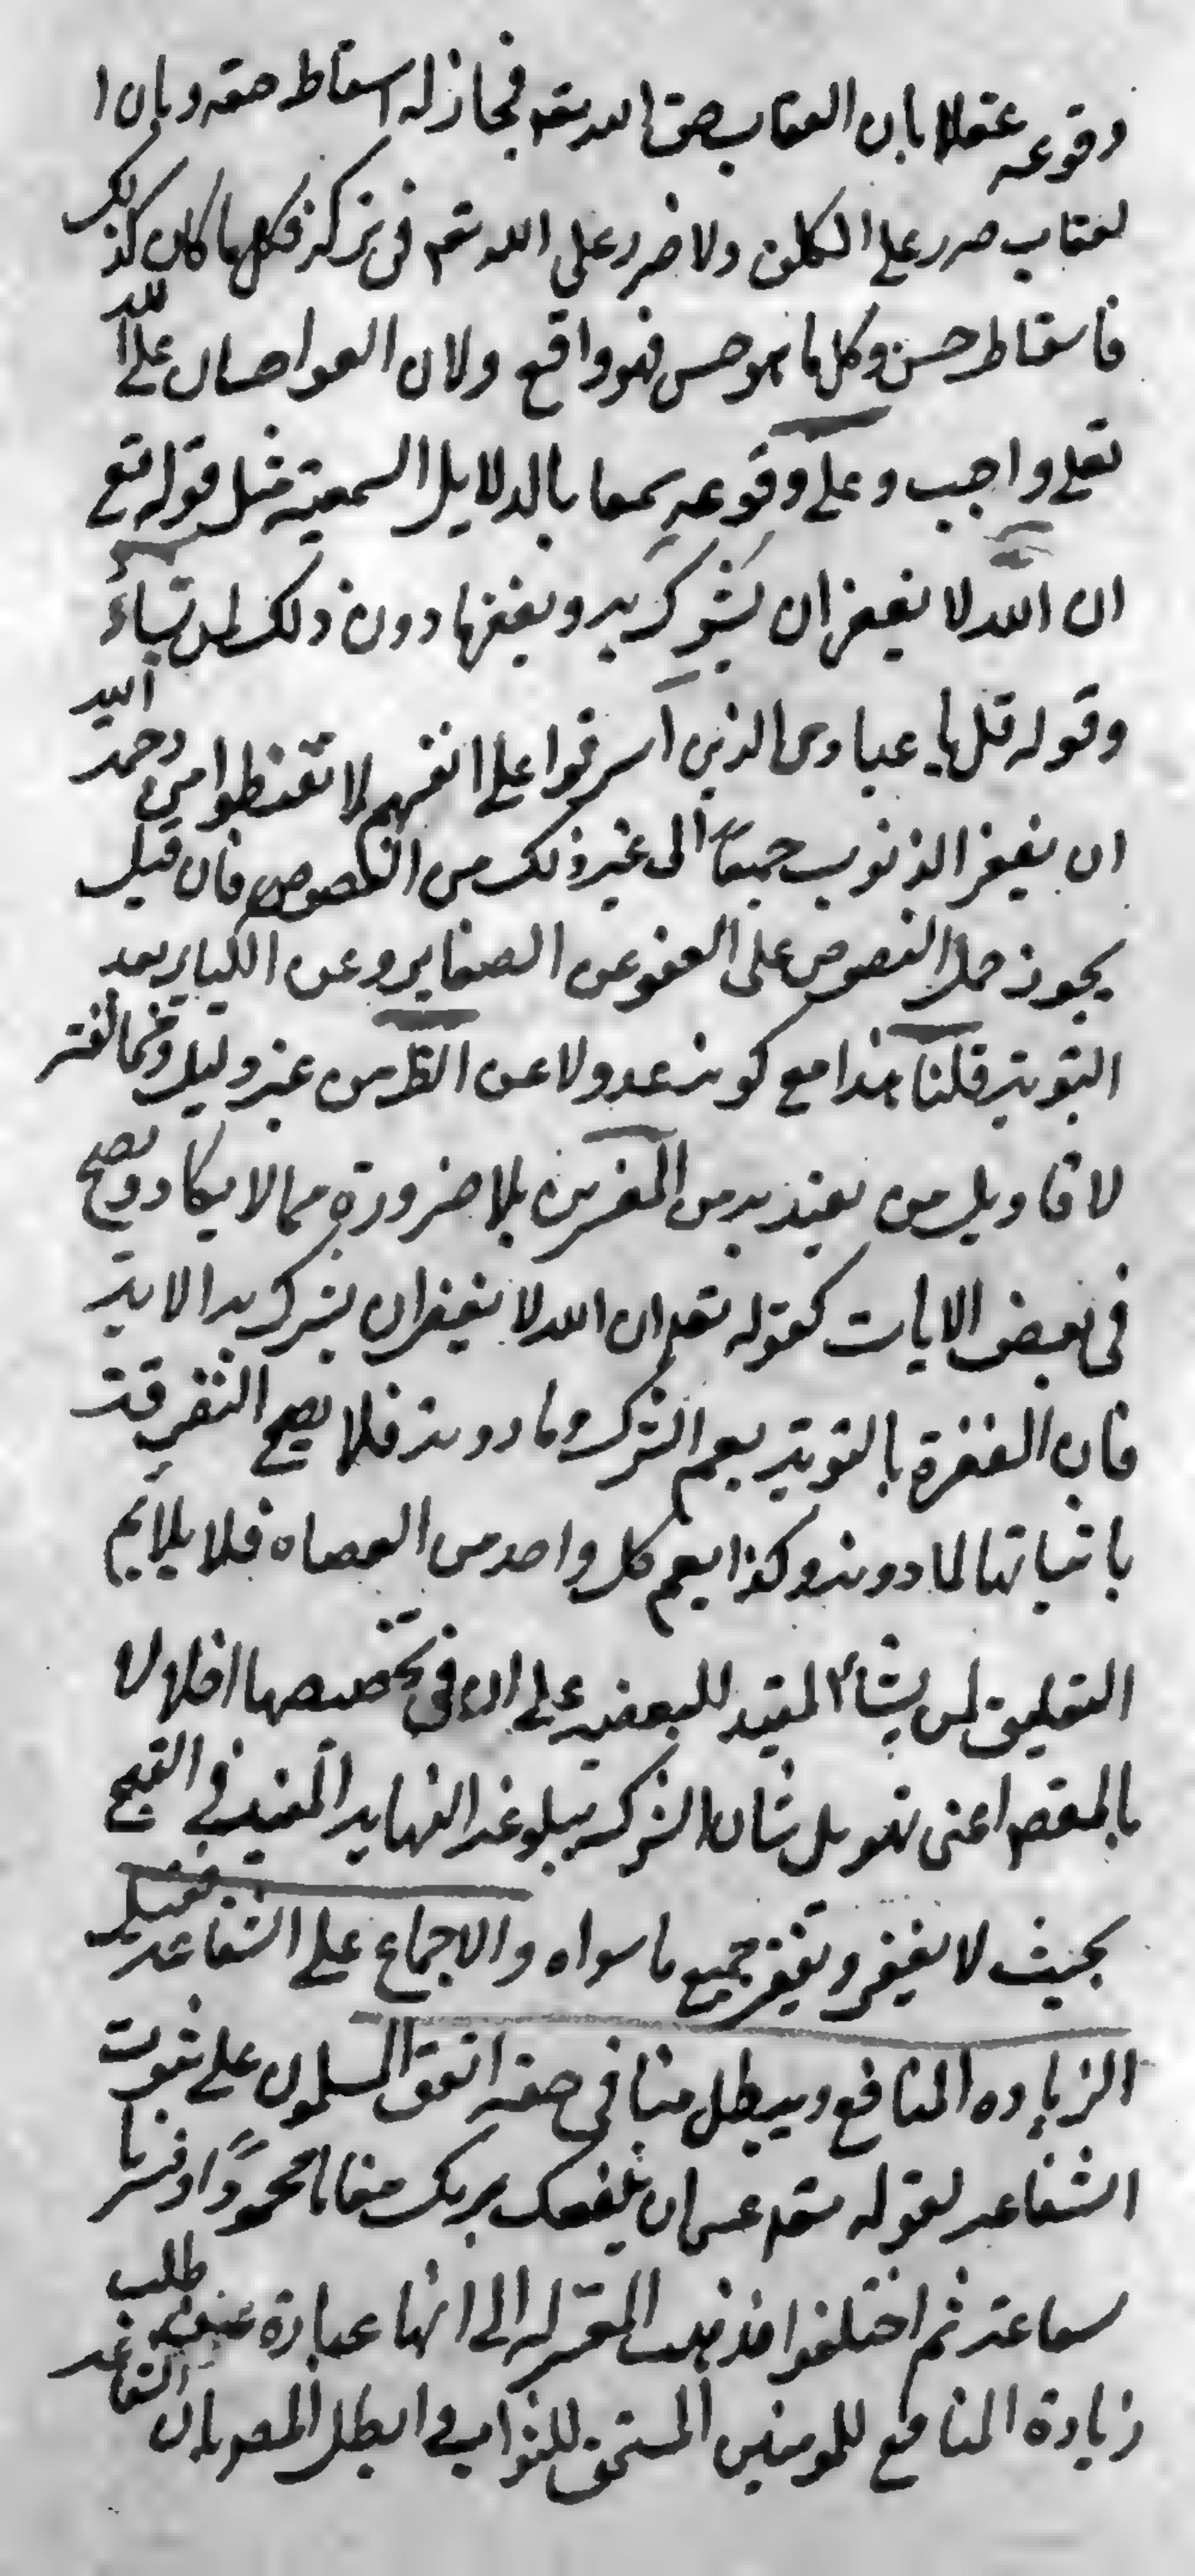 وقوعه عقلا بان العقاب حق الله تعه فجاز له اسقاط حقه وبان ا
لعقاب ضرر على المكلف ولا ضرر على الله تعه فى تركه فكلما كان كذلك
فاسقاطه حسن وكل ما هو حسن فهو واقع ولان العفو احسان على الله
تعلى واجب وعلى وقوعه سمعا بالدلايل السمعية مثل قوله تع
ان الله لا يغفر ان يشرك به ويغفر ما دون ذلك لمن يشاء
وقوله قل يا عبادى الذين اسرفوا على انفسهم لا تقنطوا من رحمة الله
ان يغفر الذنوب جميعاً الى غير ذلك من النصوص فان قيل
يجوز حمل النصوص على العفو عن الصغاير وعن الكباير بعد
التوبة قلنا هذا مع كونه عدولا عن الظ من غير دليل ومخالفته
لاقاويل من يعتد به من المفسرين بلا ضرورة مما لا يكاد يصح
فى بعض الايات كقوله تعه ان الله لا يغفر ان يشرك به الاية
فان المغفرة بالتوبة يعم الشرك وما دونه فلا يصح التفرقة
باثباتها لما دونه وكذا يعم كل واحد من العصاه فلا يلايم
التعليق لمن يشاء المفيد للبعضيه على ان فى تخصيصها اخلالا
بالمقصد اعنى تهويل شان الشرك ببلوغه النهاية فى القبح
بحيث لا يغفر ويغفر جميع ما سواه والاجماع على الشفاعة فقيل
الزياده المنافع ويبطل منا فى حقه اتفق المسلمون على ثبوت
الشفاعه لقوله تعه عسى ان يبعثك ربك مقاما محموداً وفسر با
لشفاعة ثم اختلفوا فذهب المعتزله الى انها عبارة عن طلب
زيادة المنافع للمومنين المستحق للثواب وابطل المص بان الشفاعه